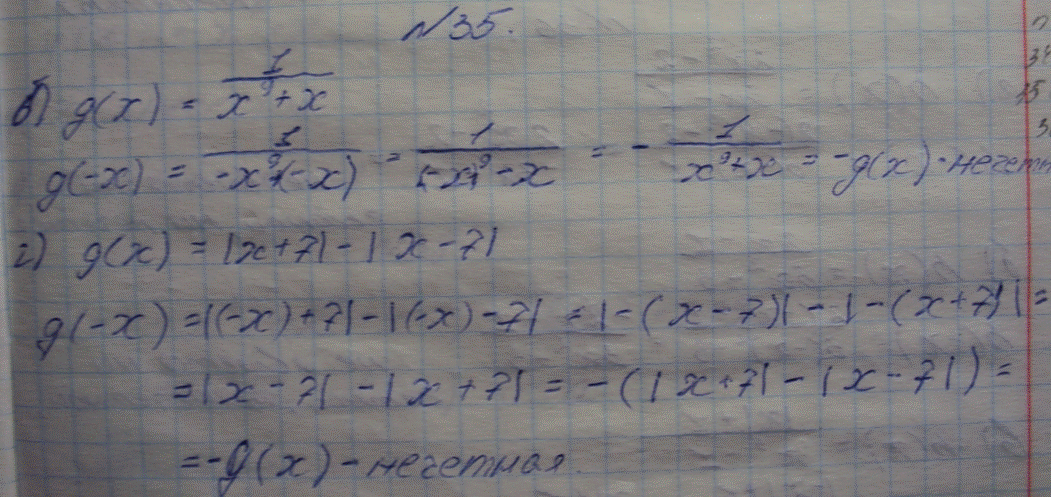 №35.
в) g(x) = 1/(x⁹+x)
g(-x) = 1/(-x⁹+(-x)) = 1/(-x⁹-x) = - 1/(x⁹+x) = -g(x) - нечетн
г) g(x) = |x+7|-|x-7|
g(-x) = |(-x)+7|-|(-x)-7| = |-(x-7)|-|-(x+7)| =
= |x-7|-|x+7| = -(|x+7|-|x-7|) =
= -g(x) - нечетная.